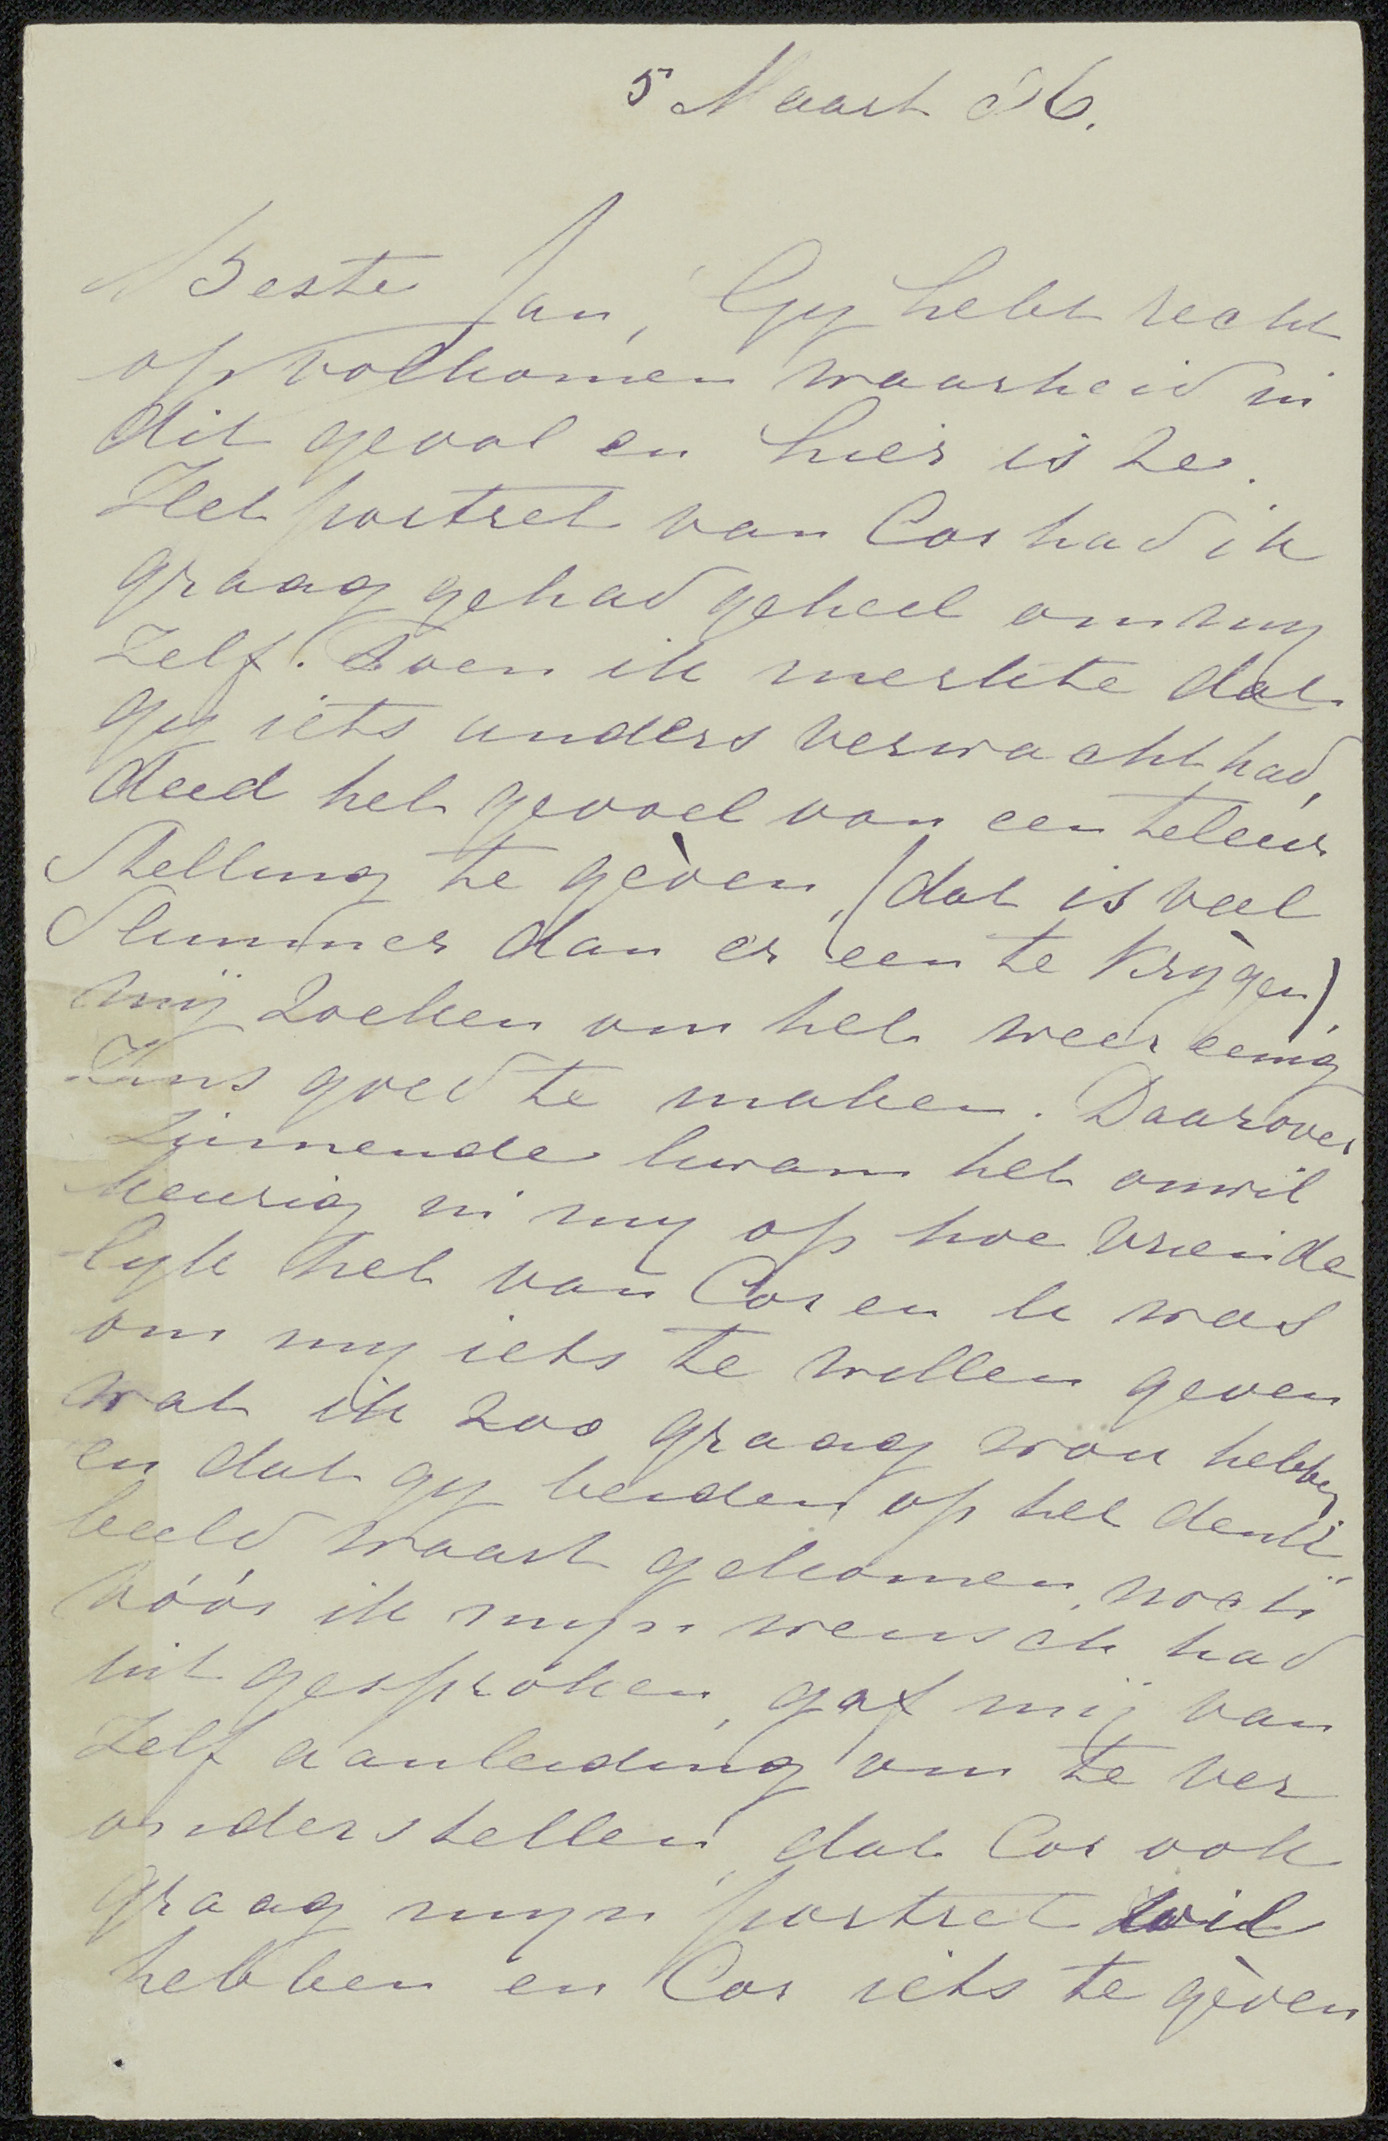 5 Maart 86.
Beste Jan, Gy hebt recht
op volkomen waarheid in
dit geval en hier is ze.
Het portret van Cor had ik
graag gehad geheel om my
zelf. Toen ik merkte dat
gy iets anders verwacht had,
deed het gevoel van een teleur
stelling te geven, (dat is veel
slimmer dan er een te krygen)
mij zoeken om het weer eenig
zins goed te maken. Daarover
zinnende kwam het onwil
keurig in my op hoe vriende
lyk het van Cor en u was
om my iets te willen geven
wat ik zoo graag wou hebben
en dat gy beiden op het denk
beeld waart gekomen, nog
vóór ik myn wensch had
uit gesproken, gaf mij van
zelf aanleiding om te ver
onderstellen, dat Cor ook
graag myn portret wil
hebben en Cor iets te geven